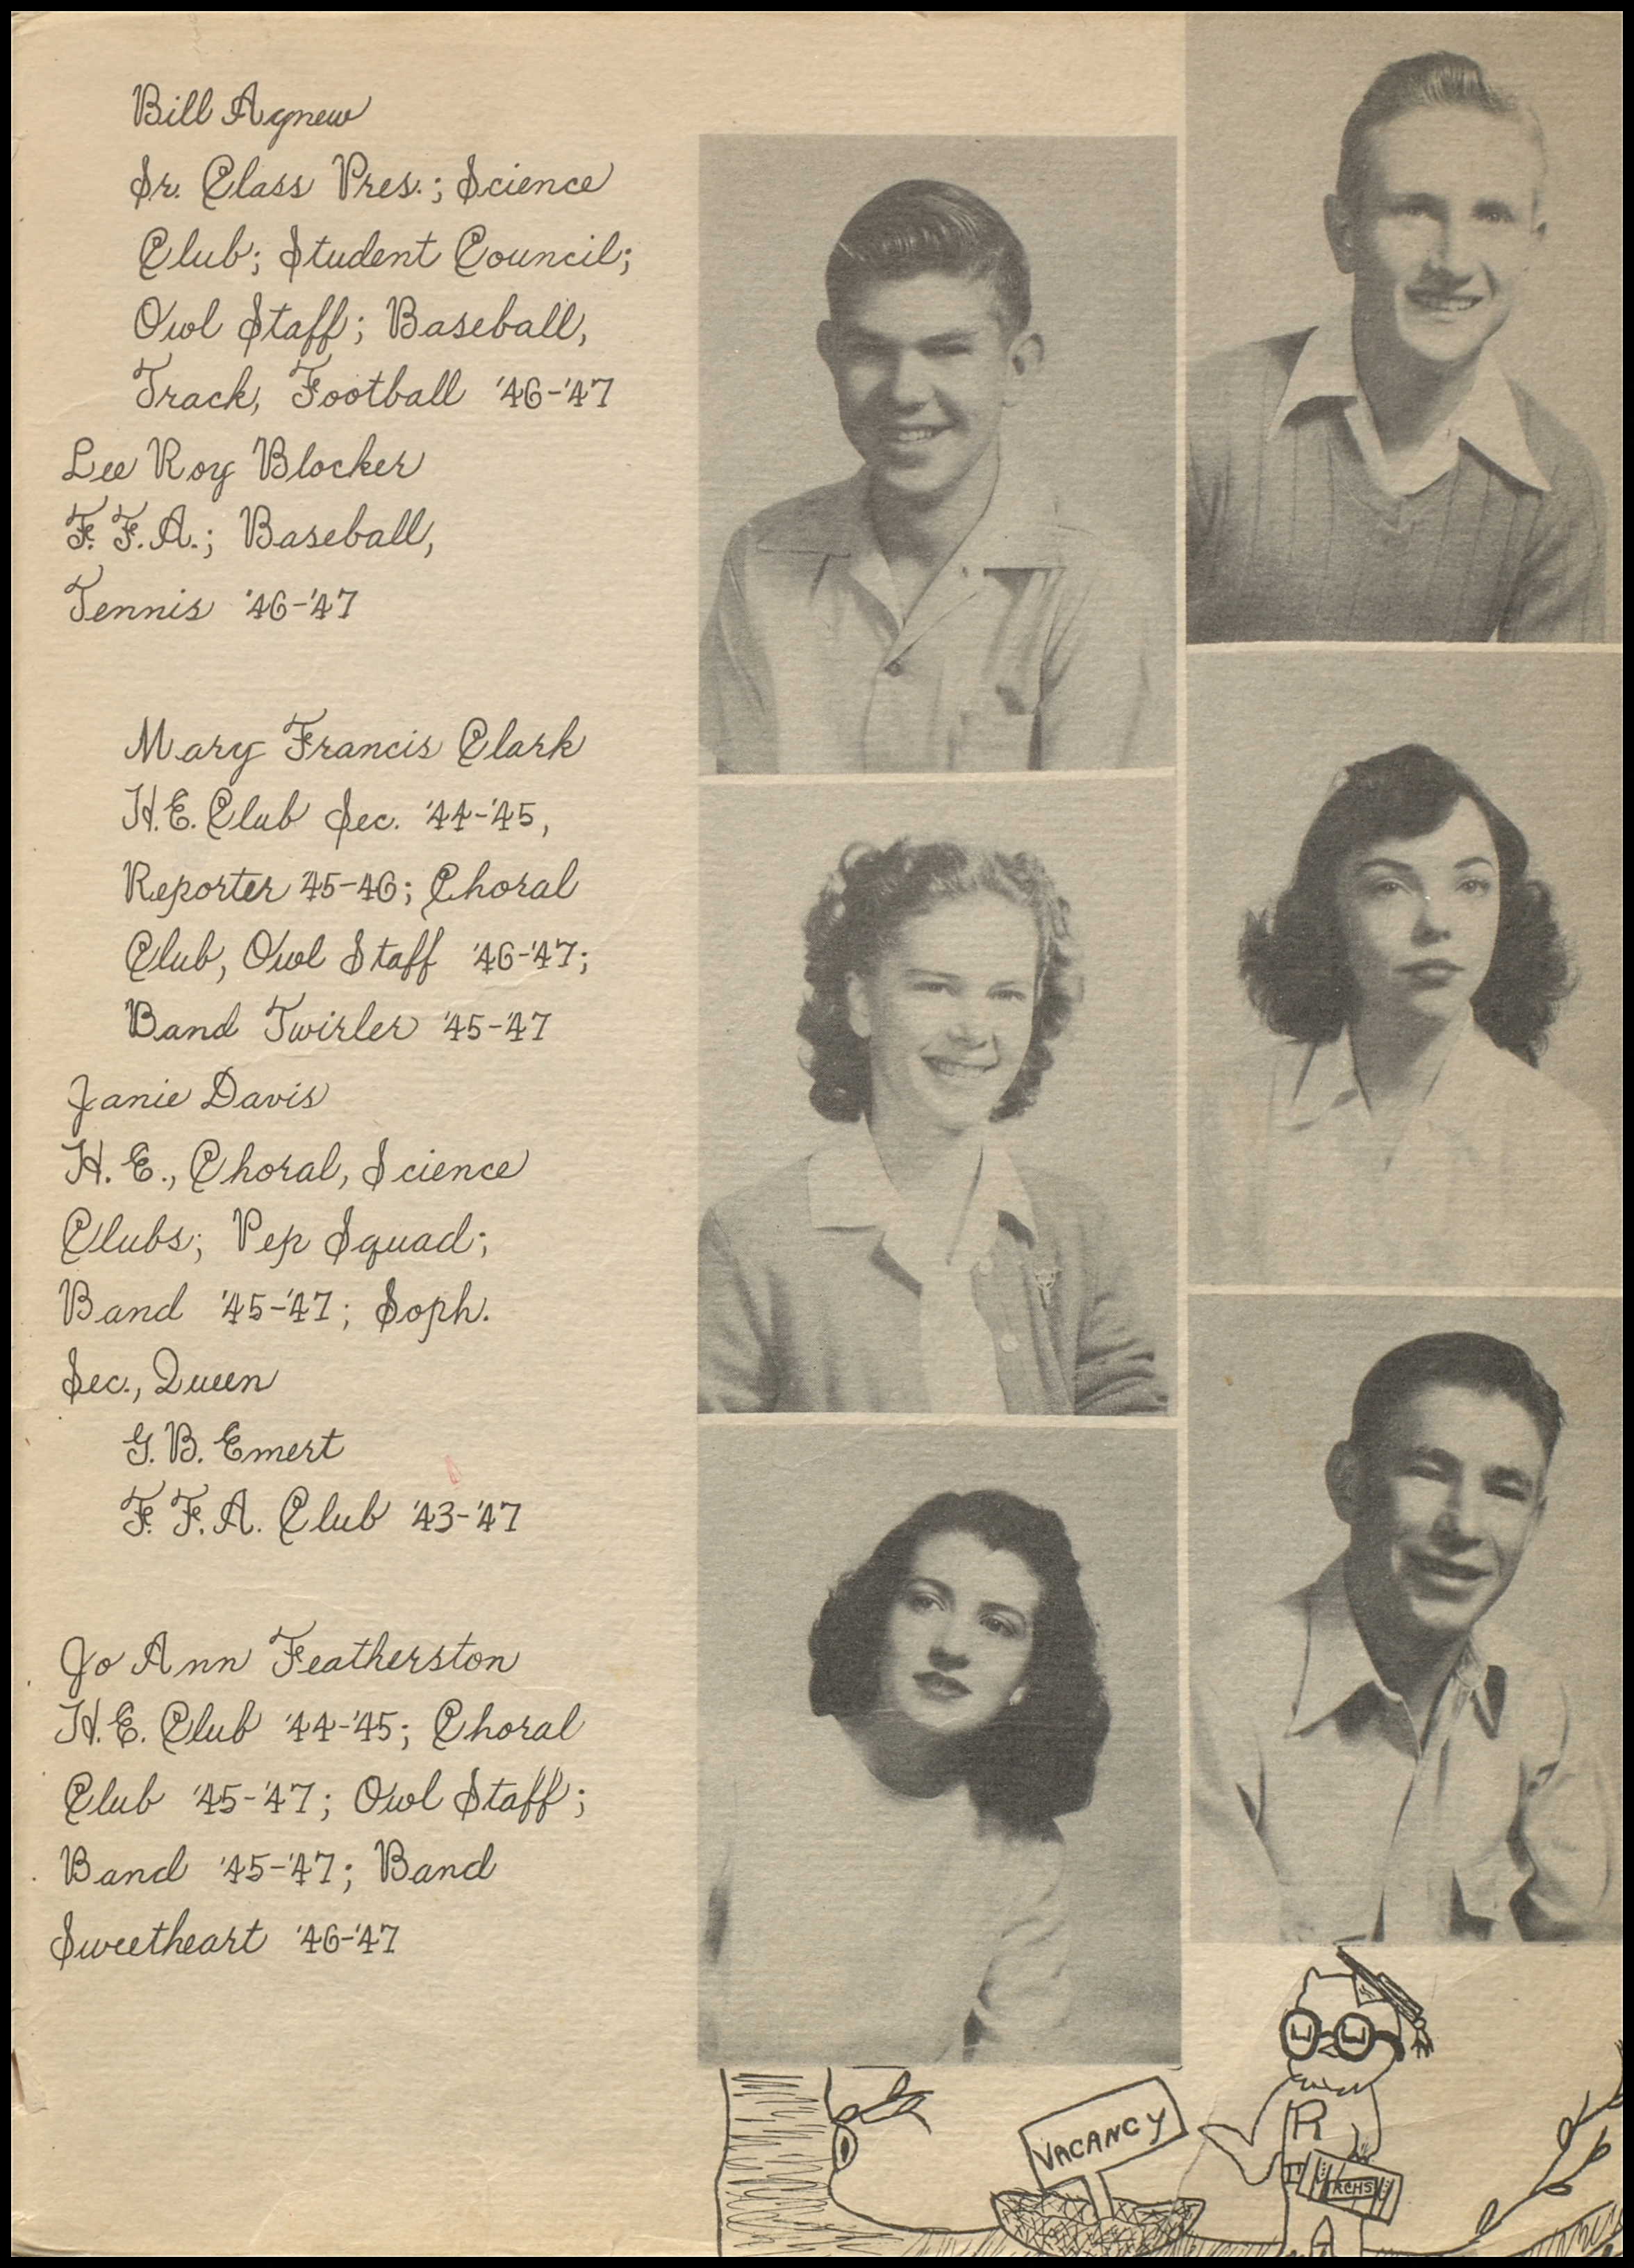 Bill Agnew
Sr. Class Pres.; Science
Club; Student Council;
Owl Staff; Baseball,
Track, Football '46-'47
Lee Roy Blocker
F.F.A.; Baseball,
Tennis '46-'47
Mary Francis Clark
H.E. Club Sec. '44-'45,
Reporter 45-46; Choral
Club, Owl Staff '46-'47;
Band Twirler '45-'47
Janie Davis
H.E., Choral, Science
Clubs; Pep Squad;
Band '45-'47; Soph.
Sec., Queen
G.B. Emert
F.F.A. Club '43-'47
Jo Ann Featherston
H.E. Club '44-'45; Choral
Club '45-'47; Owl Staff;
Band '45-'47; Band
Sweetheart '46-'47
VACANCY
R
RCHS